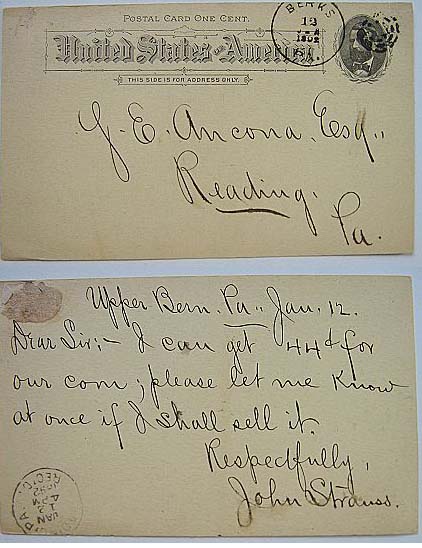 POSTAL CARD ONE CENT.
United States of America
THIS SIDE IS FOR ADDRESS ONLY.
BERKS
12
1892
PA.
J. E. Ancona, Esq.,
Reading.
Pa.
Upper Bern, Pa., Jan. 12.
Dear Sir:- I can get 44¢ for
our corn; please let me know
at once if I shall sell it.
Respectfully,
John Strauss.
PA.
JAN
12
4 PM
1892
REC'D.